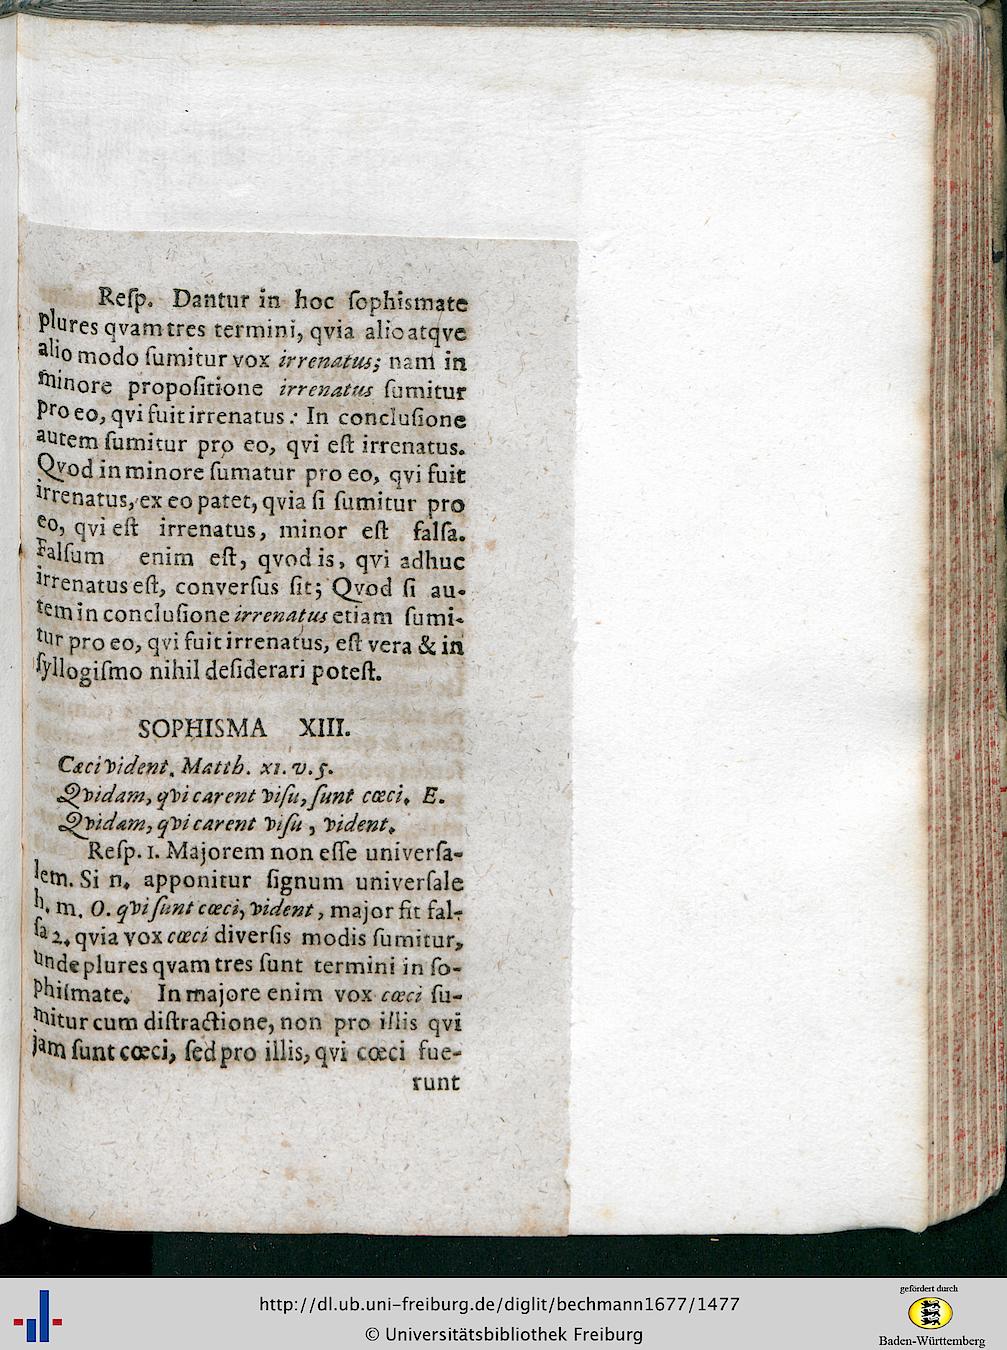 Reſp. Dantur in hoc ſophismate
plures qvam tres termini, qvia alio atqve
alio modo ſumitur vox irrenatus; nam in
minore propoſitione irrenatus ſumitur
pro eo, qvi fuit irrenatus: In concluſione
autem ſumitur pro eo, qvi eſt irrenatus.
Qvod in minore ſumatur pro eo, qvi fuit
irrenatus, ex eo patet, qvia ſi ſumitur pro
eo, qvi eſt irrenatus, minor eſt falſa.
Falſum enim eſt, qvod is, qvi adhuc
irrenatus eſt, converſus ſit; Qvod ſi au-
tem in concluſione irrenatus etiam ſumi-
tur pro eo, qvi fuit irrenatus, eſt vera & in
ſyllogiſmo nihil deſiderari poteſt.
SOPHISMA XIII.
Cæci vident. Matth. XI. v. 5.
Qvidam, qvi carent viſu, ſunt cœci. E.
Qvidam, qvi carent viſu, vident.
Reſp. 1. Majorem non eſſe univerſa-
lem. Si n. apponitur ſignum univerſale
h. m. O. qvi ſunt cœci, vident, major fit fal-
ſa 2. qvia vox cœci diverſis modis ſumitur,
unde plures qvam tres ſunt termini in ſo-
phiſmate. In majore enim vox cœci ſu-
mitur cum diſtractione, non pro illis qvi
jam ſunt cœci, ſed pro illis, qvi cœci fue-
runt
http://dl.ub.uni-freiburg.de/diglit/bechmann1677/1477
© Universitätsbibliothek Freiburg
gefördert durch
Baden-Württemberg